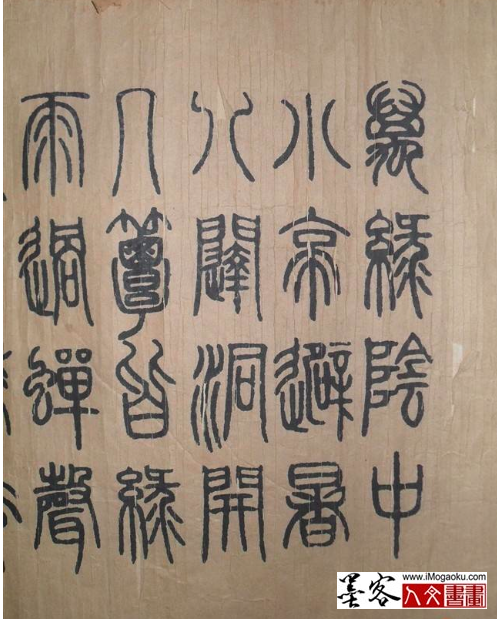 萬綠陰中
小亭避暑
八闥洞開
几簟皆綠
雨過蟬聲
墨客
www.iMogaoku.com
人文書畫